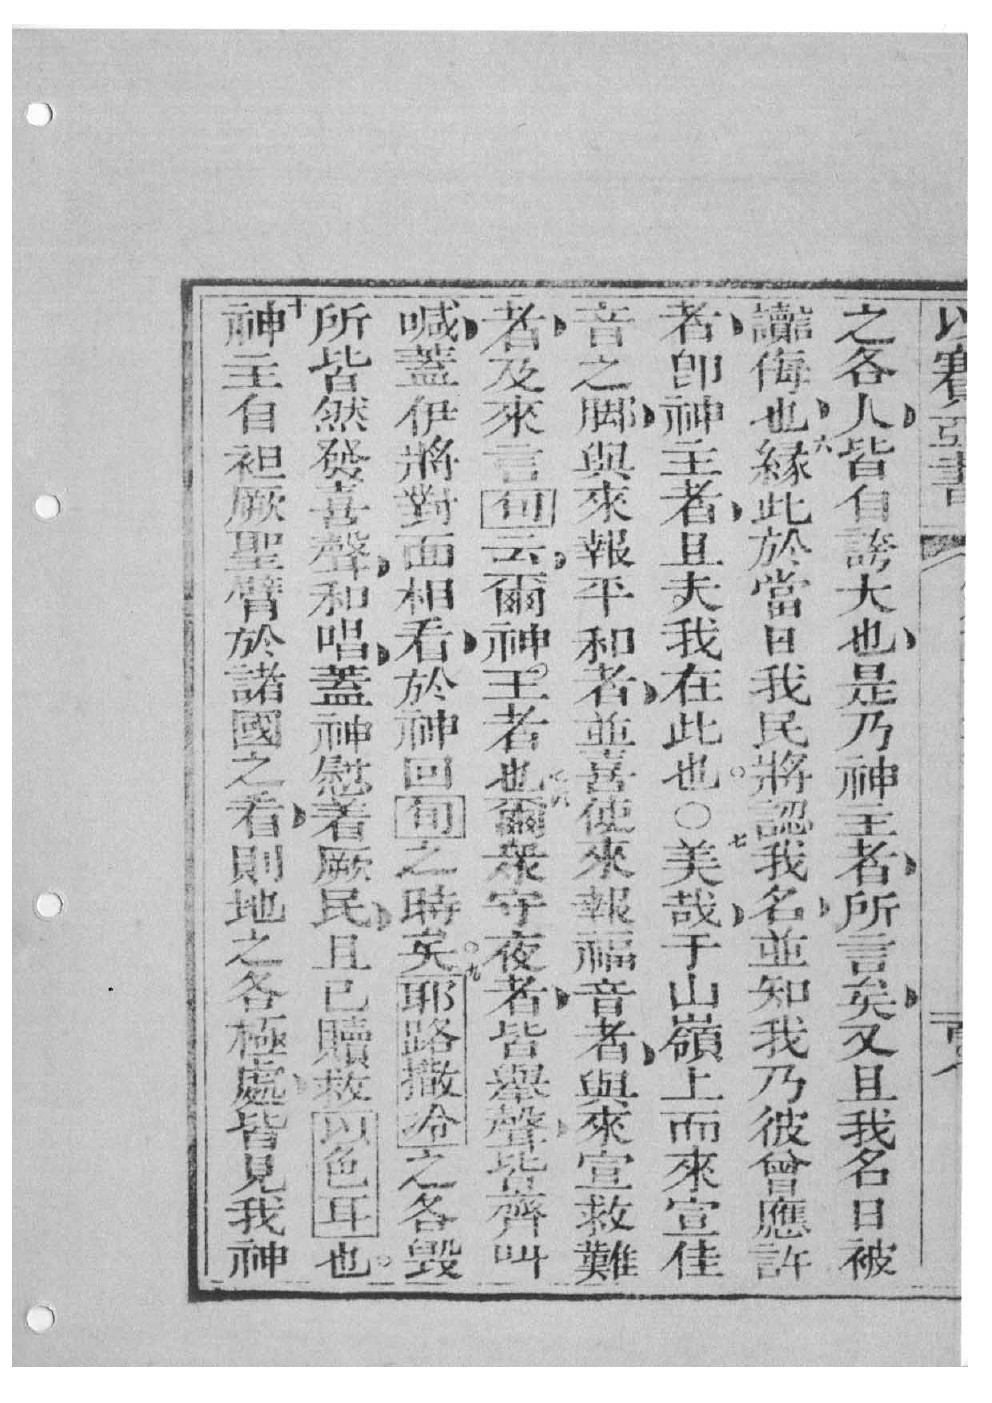 以賽亞書
之各人皆自誇大也是乃神主者所言矣又且我名日被
讟侮也六緣此於當日我民將認我名並知我乃彼曾應許
者卽神主者且夫我在此也○七美哉于山嶺上而來宣佳
音之脚與來報平和者並喜使來報福音者與來宣救難
者及來言旬云爾神王者也爾衆守夜者皆舉聲皆齊叫
喊蓋伊將對面相看於神回旬之時矣九耶路撒冷之各毀
所皆然發喜聲和唱蓋神慰着厥民且已贖救以色耳也
十神主自袒厥聖臂於諸國之看則地之各極處皆見我神